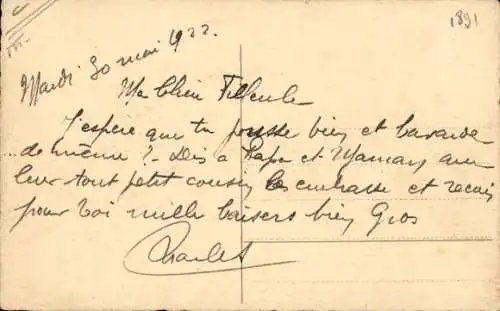 1891
Mardi 30 mai 1922.
Ma Chère Filleule
J'espère que tu pousse bien et bavarde
de même ? - Dis à Papa et Maman que
leur tout petit cousin les embrasse et reçois
pour toi mille baisers bien Gros
Charles